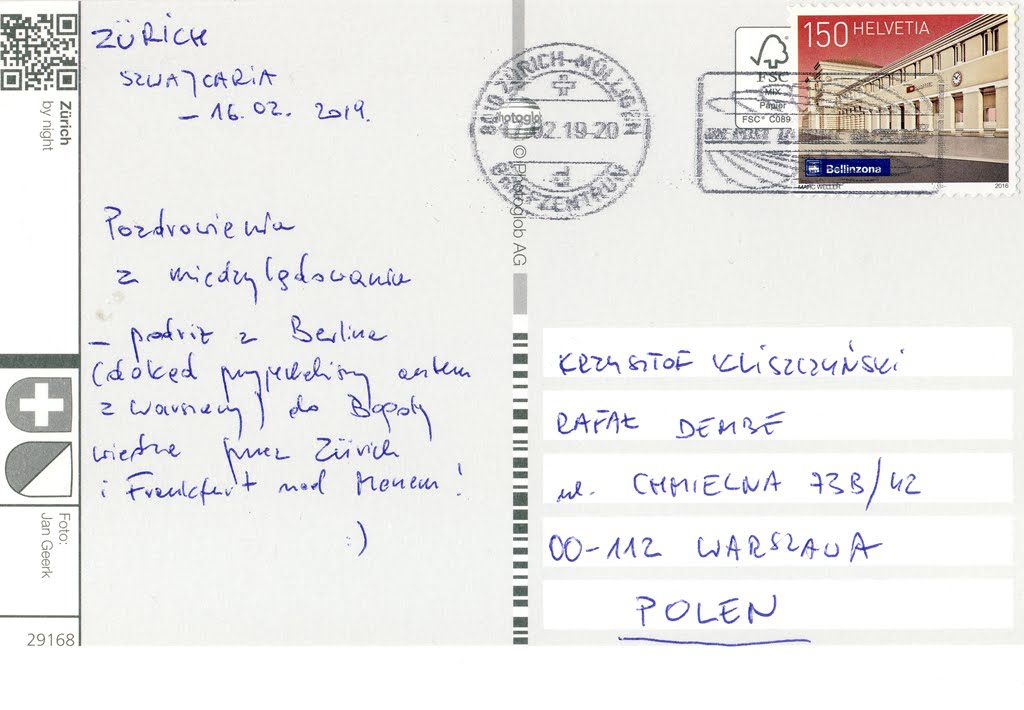 ZÜRICH
SZWAJCARIA
- 16.02. 2019.
Pozdrowienia
z międzylądowania
- podróż z Berlina
(dokąd przyjechaliśmy autem
z Warszawy) do Bogoty
wiedzie przez Zürich
i Frankfurt nad Menem!
:)
Zürich
by night
Foto:
Jan Geerk
29168
© Photoglob AG
Photoglob
8010 ZÜRICH-MÜLLIGEN
17.02.19-20
BRIEFZENTRUM
FSC
MIX
Papier
FSC® C089
150 HELVETIA
Bellinzona
MARC WELLER 2016
KRZYSZTOF KLISZCZYŃSKI
RAFAŁ DEMBE
ul. CHMIELNA 73B/42
00-112 WARSZAWA
POLEN